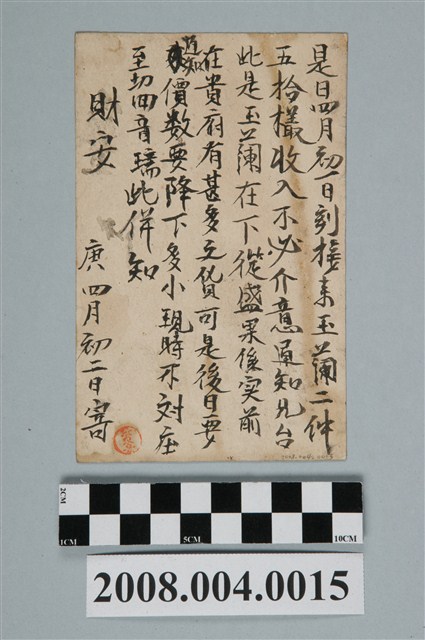 是日四月初一日刻接来玉蘭二件
五拾𣛮收入不必介意通知兄台
此是玉蘭在下從盛果後实前
在貴府有甚多文貨可是後日要
通知
價数要降下多小現時不对庄
至切回音瑞此併知
財安
庚四月初二日寄
2CM
1CM
5CM
10CM
2008.004.0015